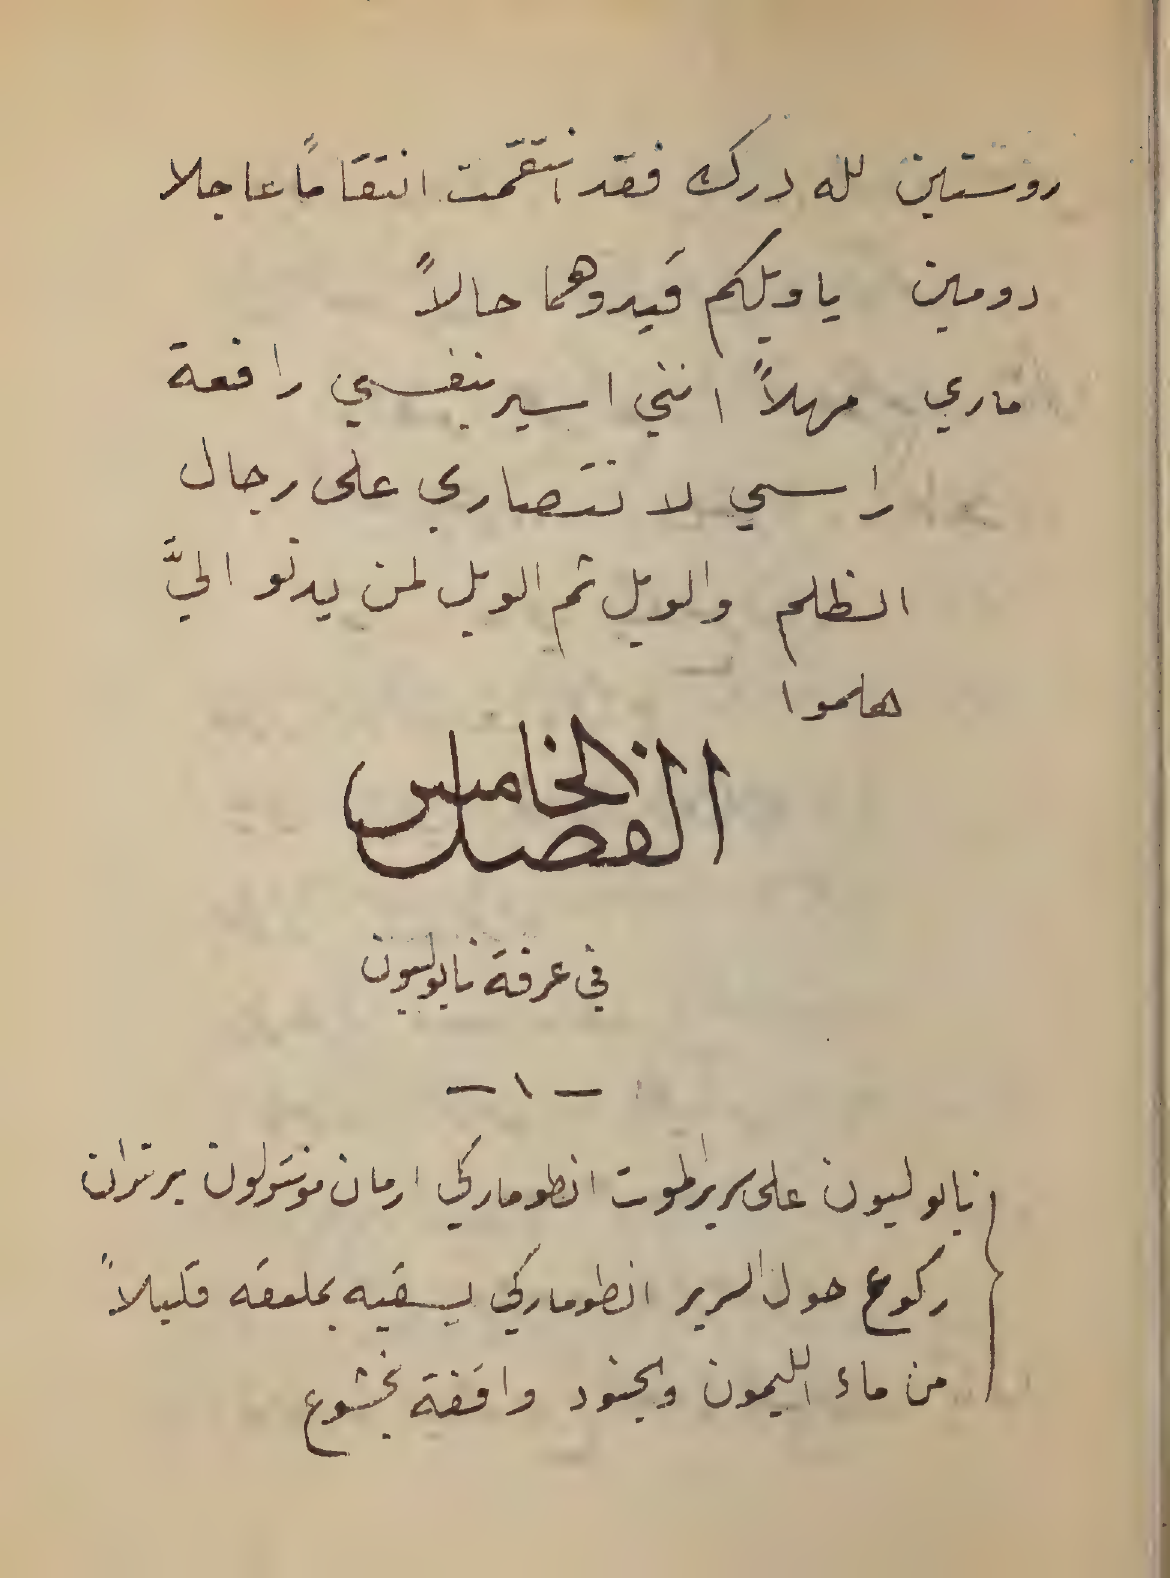 روستين لله درك فقد انتقمت انتقاماً عاجلا
دومين ياويلكم قيدوهما حالاً
ماري مهلاً انني اسير بنفسي رافعة
راسي لانتصاري على رجال
الظلم والويل ثم الويل لمن يدنو اليَّ
هلموا
الفصل الخامس
في غرفة نابوليون
— ١ —
نابوليون على سرير الموت انطوماركي ارمان مونتولون برتران
ركوع حول السرير انطوماركي يسقيه بملعقه قليلاً
من ماء الليمون والجنود واقفة بخشوع